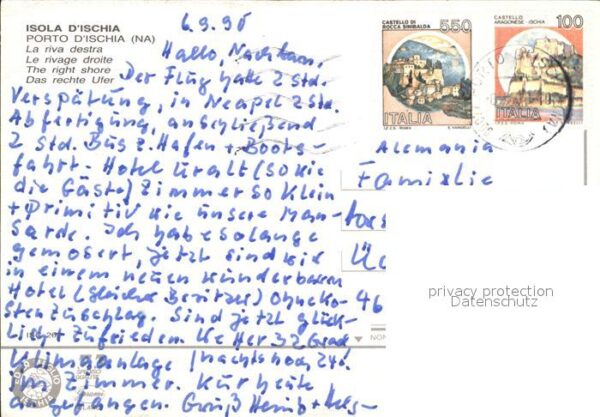 6.9.90
ISOLA D'ISCHIA
PORTO D'ISCHIA (NA)
La riva destra
Le rivage droite
The right shore
Das rechte Ufer
CASTELLO DI
ROCCA SINIBALDA
550
ITALIA
I.P.Z.S. ROMA
E. VANGELLI
CASTELLO
ARAGONESE ISCHIA
100
ITALIA
Hallo,
Der Flug hatte 2 Std.
Verspätung, in Neapel 2 Std.
Abfertigung, anschließend
2 Std. Bus z. Hafen + Boots-
fahrt. Hotel uralt (so wie
die Gäste) Zimmer so klein
+ Primitiv wie unsere Man-
sarde. Ich habe solange
gemosert, jetzt sind wir
in einem neuen wunderbaren
Hotel (gleicher Besitzer) Ohne Ko-
stenzuschlag. Sind jetzt glück-
lich + zufrieden. Wetter 32 Grad
Klimaanlage (nachts noch 24°)
im Zimmer. Kur heute
angefangen. Gruß
Alemania
Familie
46
privacy protection
Datenschutz